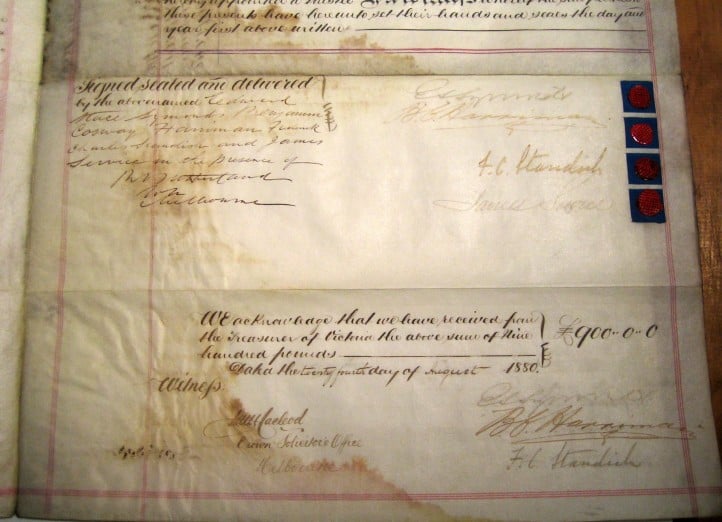 these presents have hereunto set their hands and seals the day and
year first above written
Signed sealed and delivered
by the abovenamed Edward
Stace Symonds Benjamin
Cosway Harriman Frank
Charles Standish and James
Service in the presence of
Sutherland
Melbourne
F. C. Standish
James Service
We acknowledge that we have received from
the Treasurer of Victoria the above sume of Nine
hundred pounds
£900..0..0
Dated the twenty fourth day of August 1880.
Witness
Macleod
Crown Solicitor's Office
Melbourne
B. C. Harriman
F. C. Standish